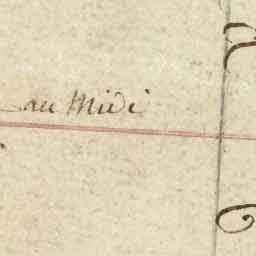 au Midi